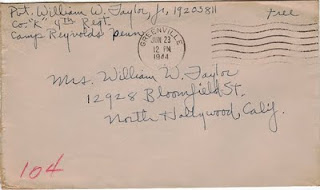 Pvt. William W. Taylor, Jr, 19203811
Co. "K" 4th Regt.
Camp Reynolds Penn
Free
GREENVILLE
JUN 23
12 PM
1944
Mrs. William W. Taylor
12928 Bloomfield St.
North Hollywood, Calif.
104